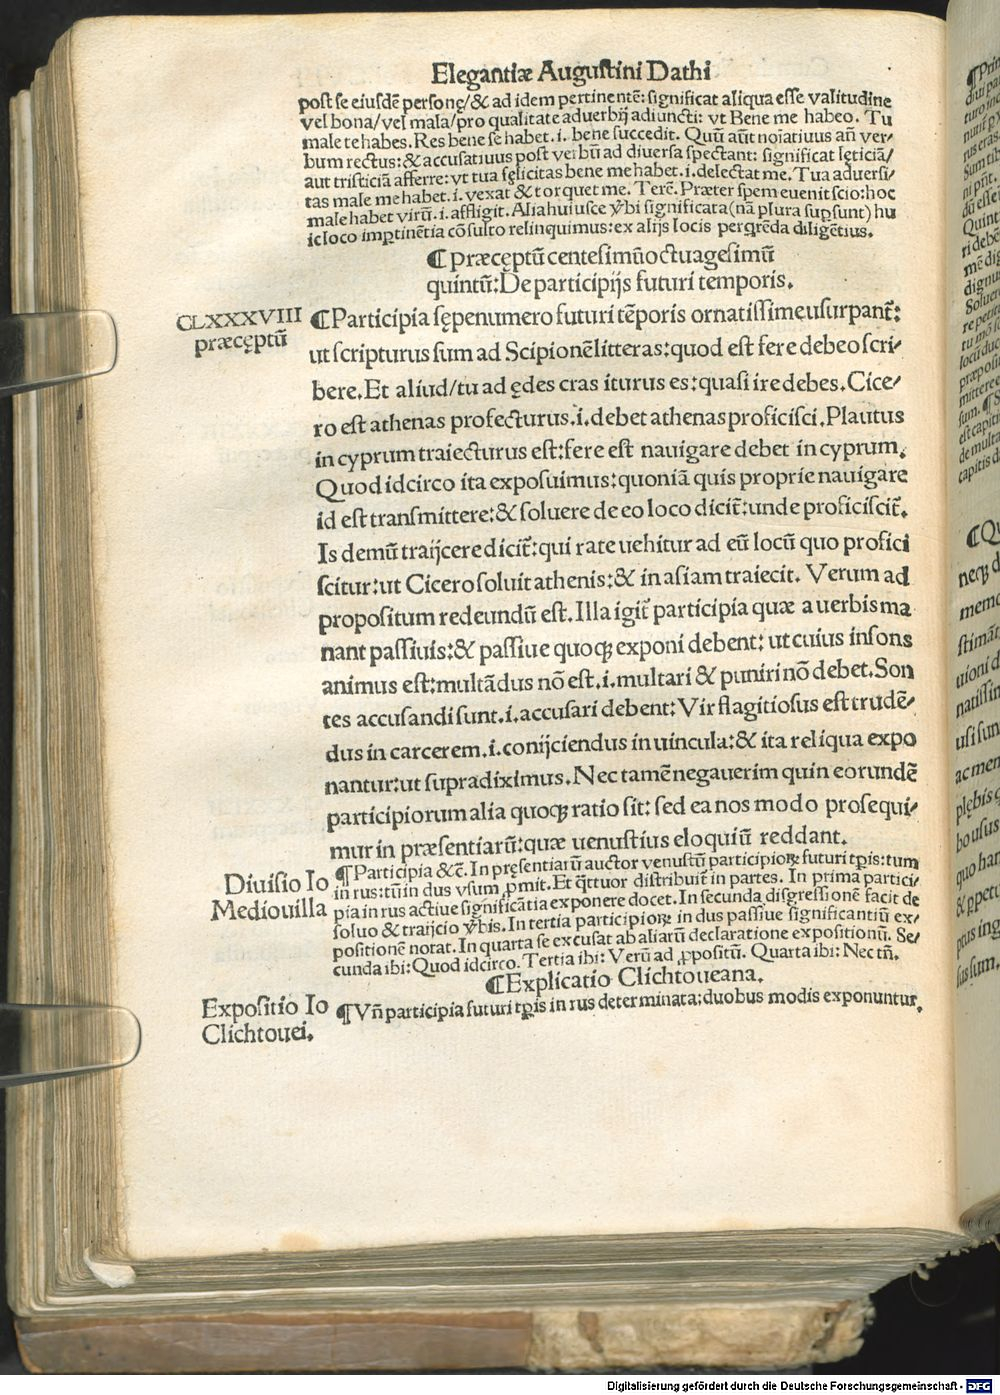 Elegantiæ Augustini Dathi
post se eiusdē personę/& ad idem pertinentē: significat aliqua esse valitudine
vel bona/vel mala/pro qualitate aduerbij adiuncti: vt Bene me habeo. Tu
male te habes. Res bene se habet .i. bene succedit. Quū aūt noīatiuus añ ver-
bum rectus: & accusatiuus post verbū ad diuersa spectant: significat lęticiā/
aut tristiciā afferre: vt tua fęlicitas bene me habet .i. delectat me. Tua aduersi-
tas male me habet .i. vexat & torquet me. Terē. Præter spem euenit scio: hoc
male habet virū .i. affligit. Alia huiusce v̄bi significata (nā plura supsunt) hu
ic loco imptinētia cōsulto relinquimus: ex alijs locis perqrēda diligētius.
¶ præcęptū centesimū octuagesimū
quintū: De participijs futuri temporis.
CLXXXVIII
præcęptū
¶ Participia sępenumero futuri tēporis ornatissime usurpant̄:
ut scripturus sum ad Scipionē litteras: quod est fere debeo scri-
bere. Et aliud/tu ad ędes cras iturus es: quasi ire debes. Cice-
ro est athenas profecturus .i. debet athenas proficisci. Plautus
in cyprum traiecturus est: fere est nauigare debet in cyprum.
Quod idcirco ita exposuimus: quoniā quis proprie nauigare
id est transmittere: & soluere de eo loco dicit̄: unde proficiscit̄.
Is demū traijcere dicit̄: qui rate uehitur ad eū locū quo profici
scitur: ut Cicero soluit athenis: & in asiam traiecit. Verum ad
propositum redeundū est. Illa igit̄ participia quæ a uerbis ma
nant passiuis: & passiue quoqꝫ exponi debent: ut cuius insons
animus est: multādus nō est .i. multari & puniri nō debet. Son
tes accusandi sunt .i. accusari debent: Vir flagitiosus est trudē-
dus in carcerem .i. conijciendus in uincula: & ita reliqua expo
nantur: ut supradiximus. Nec tamē negauerim quin eorundē
participiorum alia quoqꝫ ratio sit: sed ea nos modo prosequi-
mur in præsentiarū: quæ uenustius eloquiū reddant.
Diuisio Io
Mediouilla
¶ Participia &c̄. In pręsentiarū auctor venustū participioꝝ futuri tp̄is: tum
in rus: tū in dus vsum ꝓmit. Et q̄ttuor distribuit̄ in partes. In prima partici-
pia in rus actiue significātia exponere docet. In secunda disgressionē facit de
soluo & traijcio v̄bis. In tertia participioꝝ in dus passiue significantiū ex-
positionē notat. In quarta se excusat ab aliarū declaratione expositionū. Se-
cunda ibi: Quod idcirco. Tertia ibi: Verū ad ꝓpositū. Quarta ibi: Nec tñ.
¶ Explicatio Clichtoueana.
Expositio Io
Clichtouei.
¶ Vñ participia futuri tp̄is in rus determinata: duobus modis exponuntur.
Digitalisierung gefördert durch die Deutsche Forschungsgemeinschaft - DFG